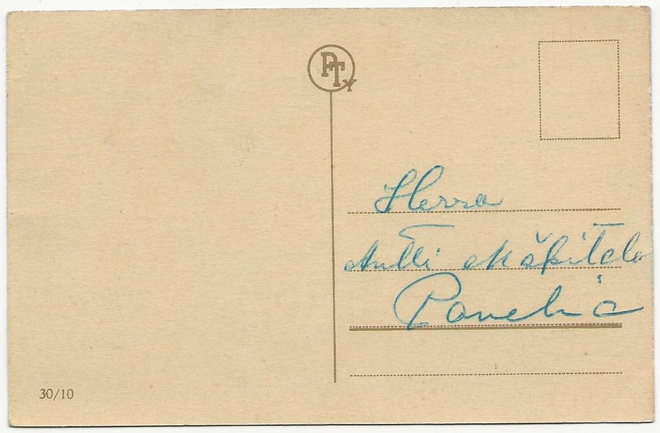 PTY
Herra
Antti Mäkitalo
Panelia
30/10